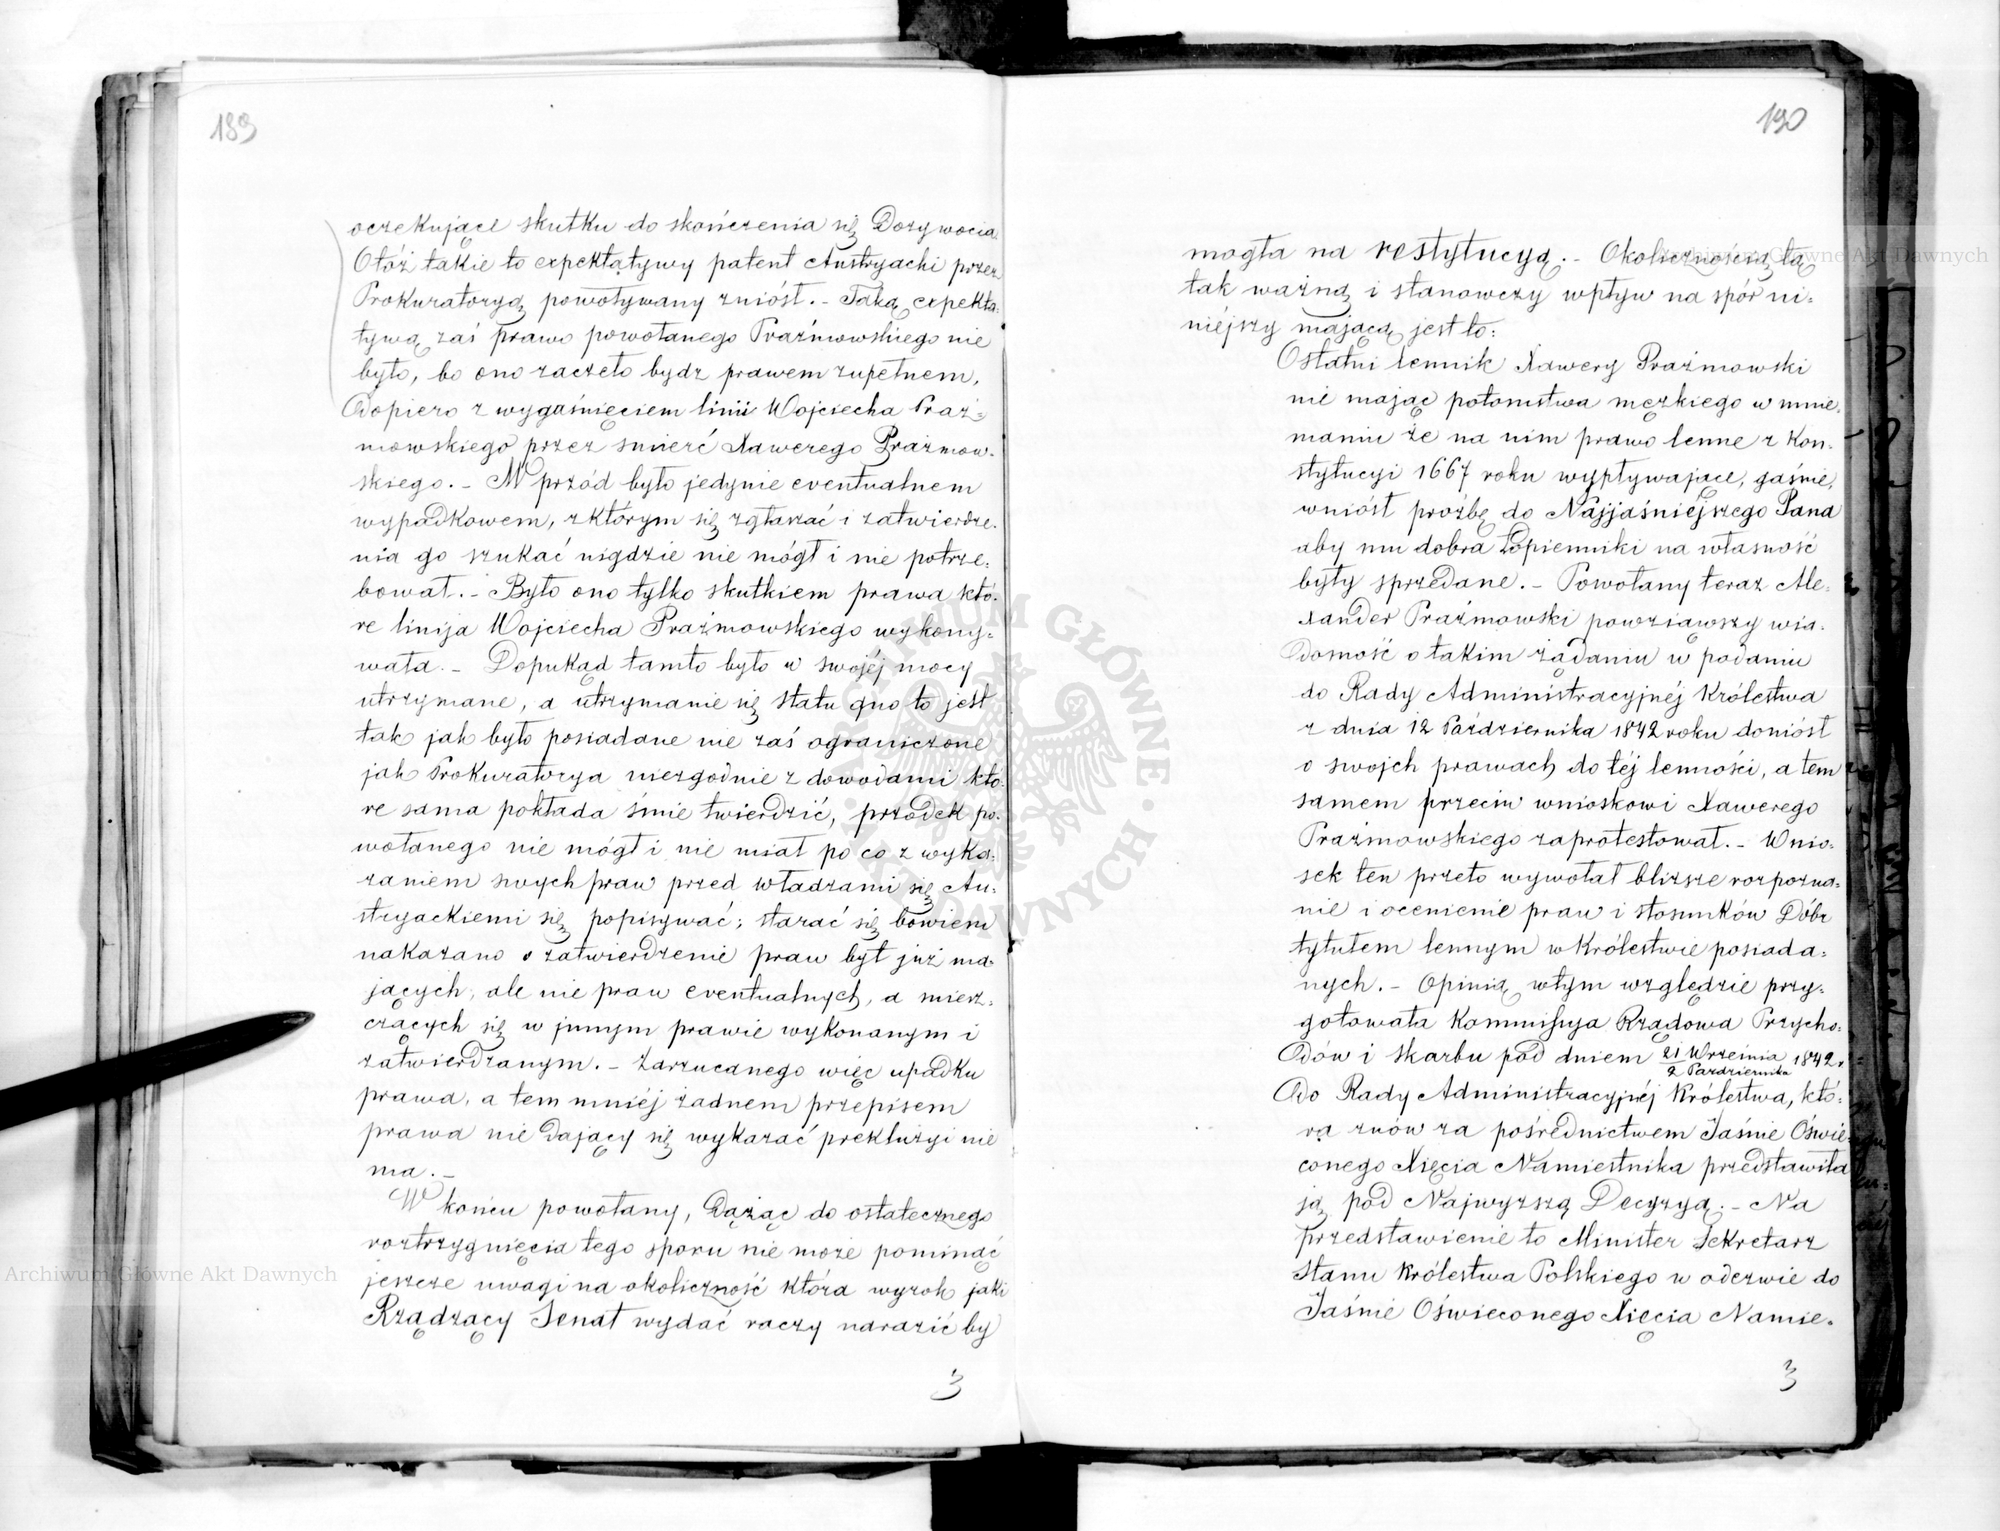 189
oczekujące skutku do skończenia się Dozywocia
Otóż takie to expektatywy patent Austryacki przez
Prokuratoryą powoływany zniósł. – Taką expekta-
tywą zaś prawo powołanego Prażmowskiego nie
było, bo ono zaczeło bydz prawem zupełnem,
dopiero z wygaśnięciem linii Wojciecha Praż-
mowskiego przez smierć Xawerego Prażmow-
skiego. – W przód było jedynie eventualnem
wypadkowem, z którym się zgłaszać i zatwierdze-
nia go szukać nigdzie nie mógł i nie potrze-
bował. – Było ono tylko skutkiem prawa któ-
re linija Wojciecha Prażmowskiego wykony-
wała. – Dopukąd tamto było w swojéj mocy
utrzymane, a utrzymanie się statu quo to jest
tak jak było posiadane nie zaś ograniczone
jak Prokuratorya niezgodnie z dowodami któ-
re sama pokłada śmie twierdzić, przodek po-
wołanego nie mógł i nie miał po co z wyka-
zaniem swych praw przed władzami się Au-
stryackiemi się popisywać; starać się bowiem
nakazano o zatwierdzenie praw był już ma-
jących, ale nie praw eventualnych, a miesz-
czących się w jnnym prawie wykonanym i
zatwierdzanym. – Zarzucanego więc upadku
prawa, a tem mniéj żadnem przepisem
prawa nie dający się wykazać prekluzyi nie
ma. –
W końcu powołany, dążąc do ostatecznego
roztrzygnięcia tego sporu nie może pominąć
jeszcze uwagi na okoliczność która wyrok jaki
Rządzący Senat wydać raczy narazić by
3
190
mogła na restytucyą. – Okolicznością tą
tak ważną i stanowczy wpływ na spór ni-
niéjszy mającą jest to:
Ostatni lennik Xawery Prażmowski
nie mając potomstwa męzkiego w mnie-
maniu że na nim prawo lenne z Kon-
stytucyi 1667 roku wypływające, gaśnie,
wniósł prożbę do Najjaśniéjszego Pana
aby mu dobra Łopienniki na własność
były sprzedane. – Powołany teraz Ale-
xander Prażmowski powziąwszy wia-
domość o takim żądaniu w podaniu
do Rady Administracyjnéj Królestwa
z dnia 12 Pażdziernika 1842 roku doniósł
o swojch prawach do téj lenności, a tem
samem przeciw wnioskowi Xawerego
Prażmowskiego zaprotestował. – Wnio-
sek ten przeto wywołał bliższe rozpozna-
nie i ocenienie praw i stosunków Dóbr
tytułem lennym w Królestwie posiada-
nych. – Opinią w tym względzie przy-
gotowała Kommissya Rządowa Przycho-
dów i Skarbu pod dniem 21 Wrzeinia / 2 Pazdziernika 1842 r
do Rady Administracyjnéj Królestwa, któ-
ra znów za pośrednictwem Jaśnie Oświe-
conego Xięcia Namiestnika przedstawiła
ją pod Najwyższą Decyzyą. – Na
przedstawienie to Minister Sekretarz
Stanu Królestwa Polskiego w odezwie do
Jaśnie Oświeconego Xięcia Namie-
3
ARCHIWUM GŁÓWNE AKT DAWNYCH
Archiwum Główne Akt Dawnych
Archiwum Główne Akt Dawnych